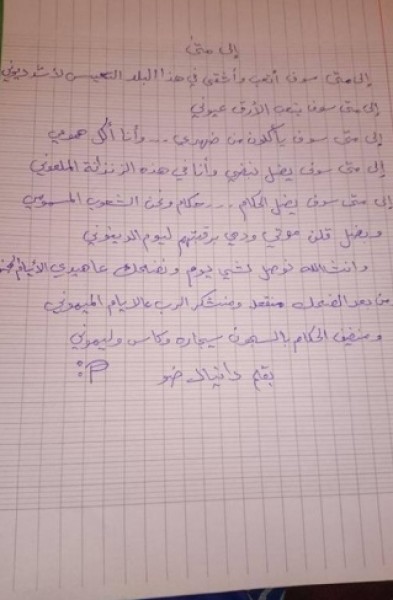 إلى متى
إلى متى سوف أتعب وأختفي في هذا البلد التعيس لأسد ديوني
إلى متى سوف يتعب الأرق عيوني
إلى متى سوف يأكلون من ضهري ... وأنا أكل همومي
إلى متى سوف يضل نبضي وأنا في هذه الزنزانة الملعوني
إلى متى سوف يضل الحكام ... حكام ونحن الشعوب
وبضل قلن موتي ودمي برقبتهم ليوم الدينوني
وانشالله نوصل لشي يوم ونضحك عا هيدي الأيام
من بعد الضحك منقعد ومنشكر الرب عالايام الميموني
ومنضيق الحكام بالسجون سيجاره وكاس وليموني
بقلم دانيال ضو :P